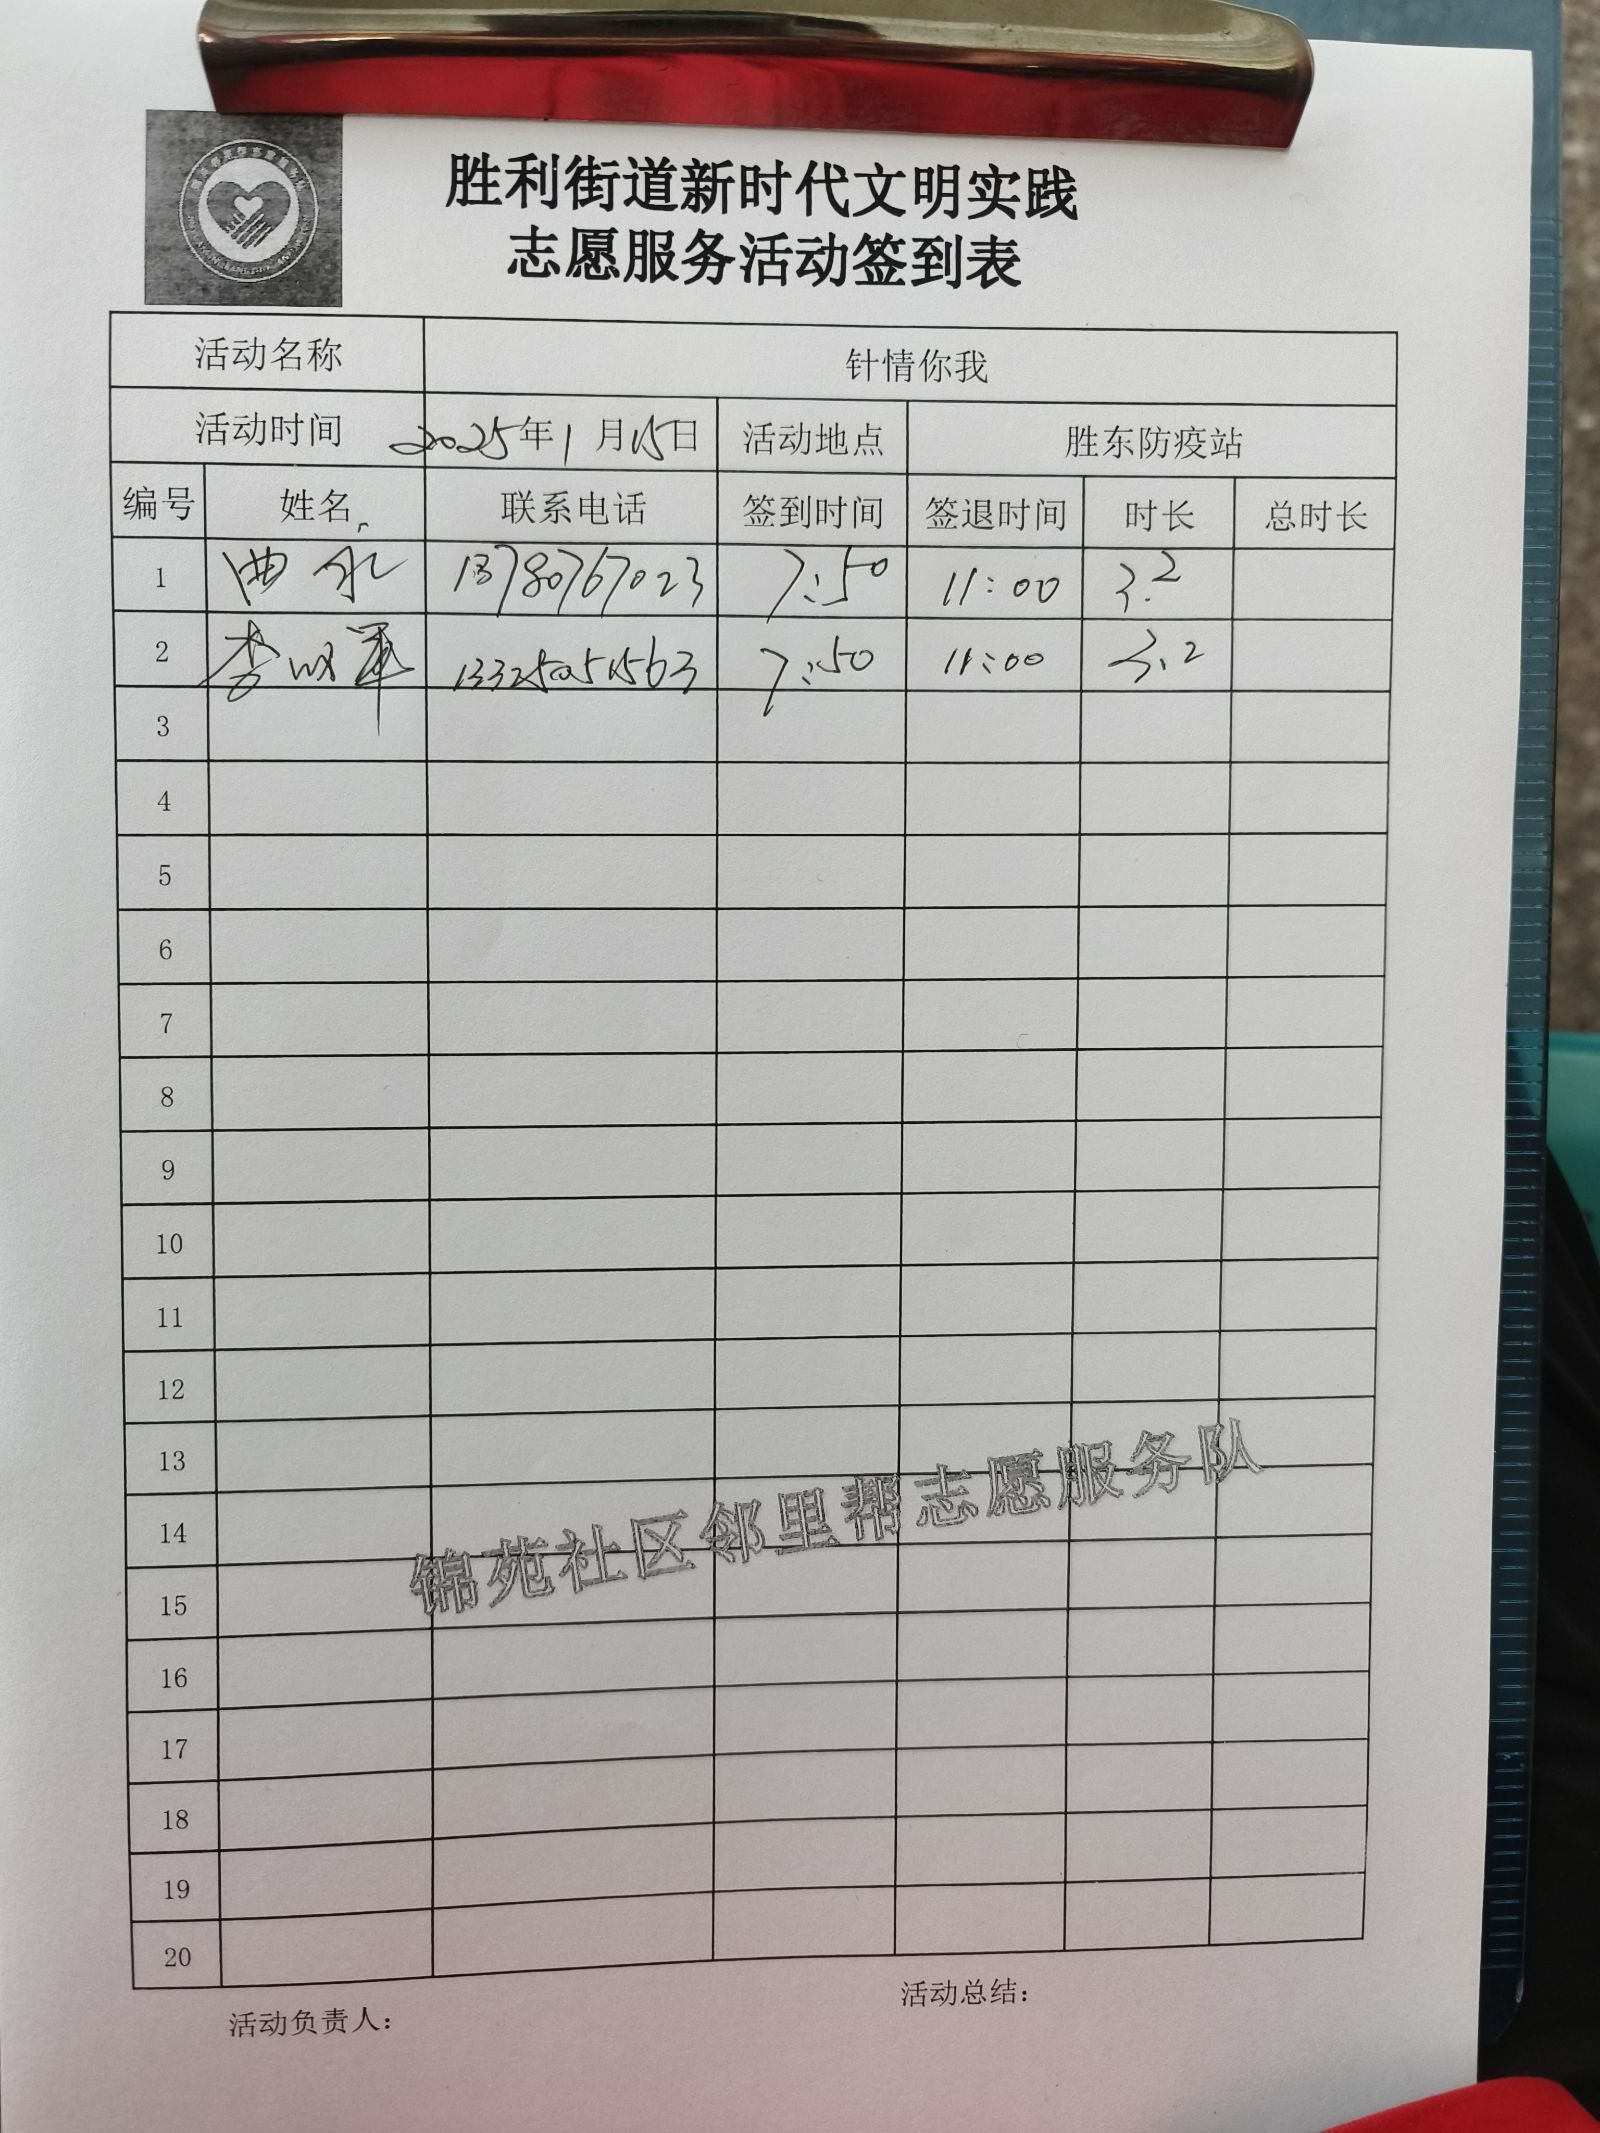 胜利街道新时代文明实践
志愿服务活动签到表
活动名称 针情你我
活动时间 2025年1月15日 活动地点 胜东防疫站
编号 姓名 联系电话 签到时间 签退时间 时长 总时长
1 曲永 13780767023 7:50 11:00 3.2
2 李 军 13325051563 7:50 11:00 3.2
3
4
5
6
7
8
9
10
11
12
13
14
锦苑社区邻里帮志愿服务队
15
16
17
18
19
20
活动负责人：
活动总结：